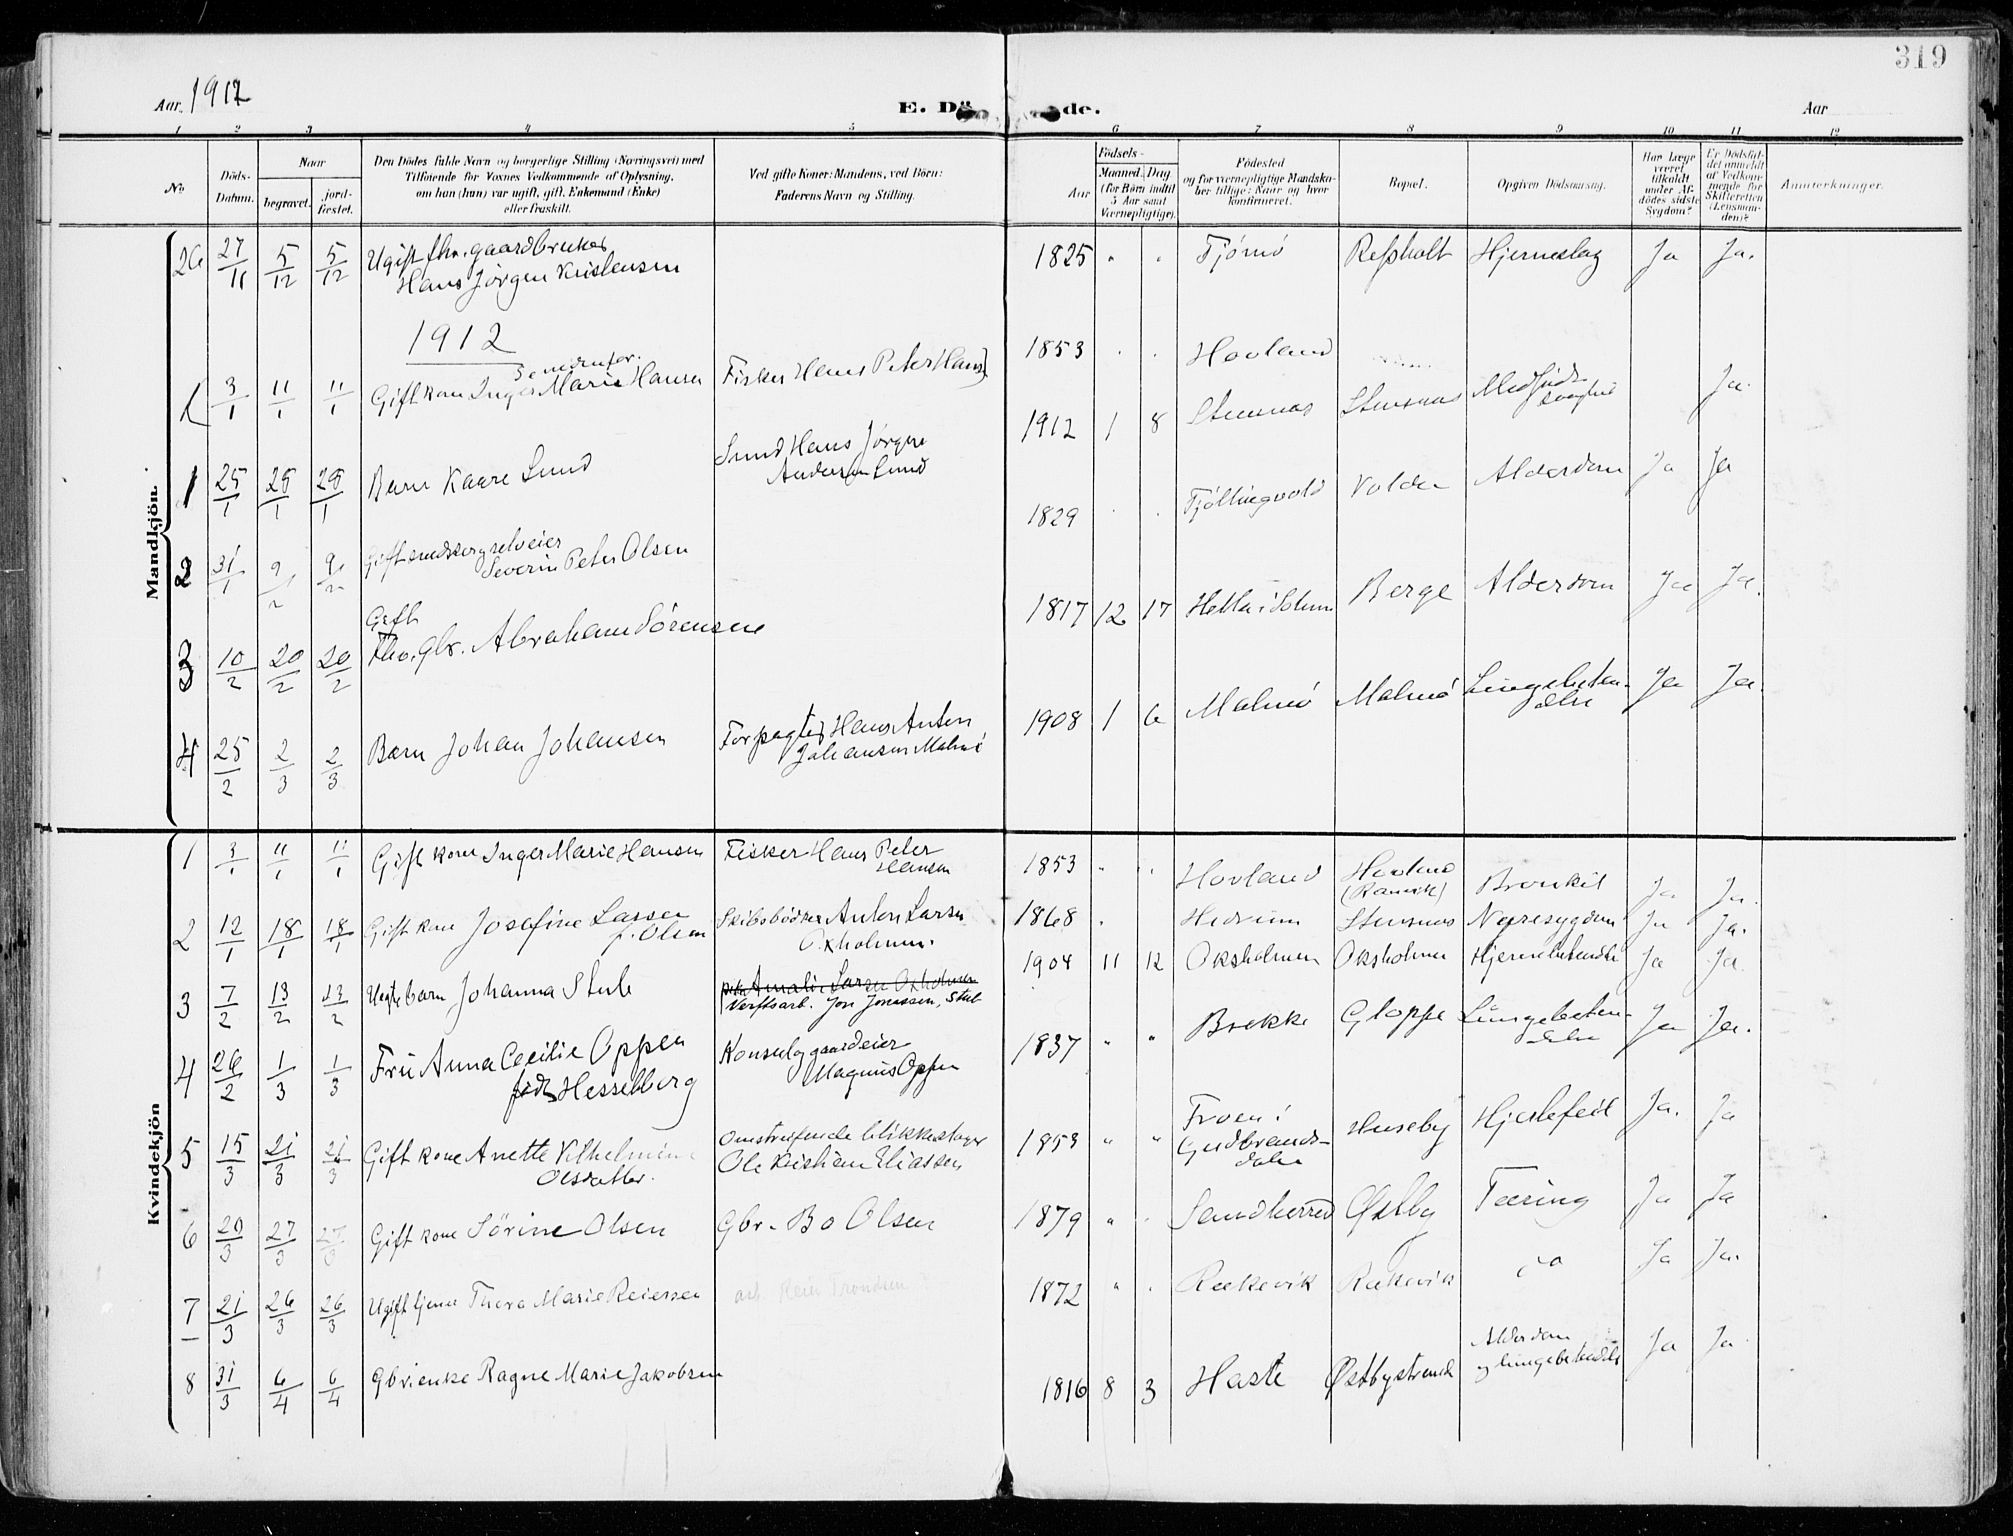 319
Aar 1912
E. Dö de.
Aar
1 2 3 4 5 6 7 8 9 10 11 12
No
Döds-Datum.
Naar
begravet.
jord-fæstet.
Den Dödes fulde Navn og borgerlige Stilling (Næringsvei) med
Tilföiende for Voxnes Vedkommende af Oplysning,
om han (hun) var ugift, gift, Enkemand (Enke)
eller fraskilt.
Ved gifte Koner: Mandens, ved Börn:
Faderens Navn og Stilling.
Aar
Födsels-
Maaned. Dag
(for Börn indtil
5 Aar samt
Værnepligtige).
Födested
og for værnepligtige Mandska-
ber tillige: Naar og hvor
konfirmeret.
Bopæl.
Opgiven Dödsaarsag.
Har Læge
været
tilkaldt
under Af-
dödes sidste
Sygdom?
Er Dödsfal-
det anmeldt
af Vedkom-
mende for
Skifteretten
(Lensman-
den)?
Anmerkninger.
Mandkjön.
26 27/11 5/12 5/12 Ugift fhv. gaardbruker
Hans Jörgen Kristensen 1825 " " Tjömö Refsholt Hjerneslag Ja Ja.
1912
Se nedenfor.
1 3/1 11/1 11/1 Gift kone Inger Marie Hansen Fisker Hans Peter Hans. 1853 " " Hovland
1 25/1 Barn Kaare Lund Hans Jörgen
Andersen Lund 1912 1 8 Stensnæs Stensnæs Medfödt
svaghet Ja
2 31/1 9/2 9/2 Gift snedker og selveier
Severin Peter Olsen 1829 Tjöllingvold Volden Alderdom Ja Ja
3 10/2 20/2 20/2 Gift
Fhv. Gbr. Abraham Sörensen 1817 12 17 Hella i Solum Berge Alderdom Ja Ja.
4 25/2 2/3 2/3 Barn Johan Johansen Forpagter Hans Anton
Johansen Malmö 1908 1 6 Malmö Malmö Lungebeten-
delse Ja Ja.
Kvindekjön
1 3/1 11/1 11/1 Gift kone Inger Marie Hansen Fisker Hans Peter
Hansen 1853 " " Hovland Hovland
(Ranvik) Bronkit Ja Ja.
2 12/1 18/1 18/1 Gift kone Josefine Larsen
f. Olsen Skibsbödker Anton Larsen
Oxholmen. 1868 Hedrum Stensnæs Nyresygdom Ja Ja.
3 7/2 13/2 13/2 Uegte barn Johanna Stub Amalie Larsen Oxholmen
Verftsarb. Jon Jonassen, Stub 1904 11 12 Oksholmen Oksholmen Hjernebetendelse Ja Ja
4 26/2 1/3 1/3 Fru Anna Cecilie Oppen
född Hesselberg Konsul og gaardeier
Magnus Oppen 1837 " " Brekke Gloppe Lungebeten-
delse Ja Ja.
5 15/3 21/3 21/3 Gift kone Anette Vilhelmine
Olsdatter. Omstreifende blikkenslager
Ole Kristian Eliassen 1853 " " Froen i
Gudbrands-
dalen Huseby Hjertefeil Ja. Ja
6 20/3 27/3 27/3 Gift kone Sörine Olsen Gbr. Bo Olsen 1879 " " Sandherred Østby Tæring Ja Ja
7 21/3 26/3 26/3 Ugift tjener Thora Marie Reiersen arb. Reier Trondsen 1872 " " Rækevik Rækevik do Ja Ja.
8 31/3 6/4 6/4 Gbrenke Ragne Marie Jakobsen 1816 8 3 Haste Østbystrand Alderdom
og lungebetendelse Ja Ja